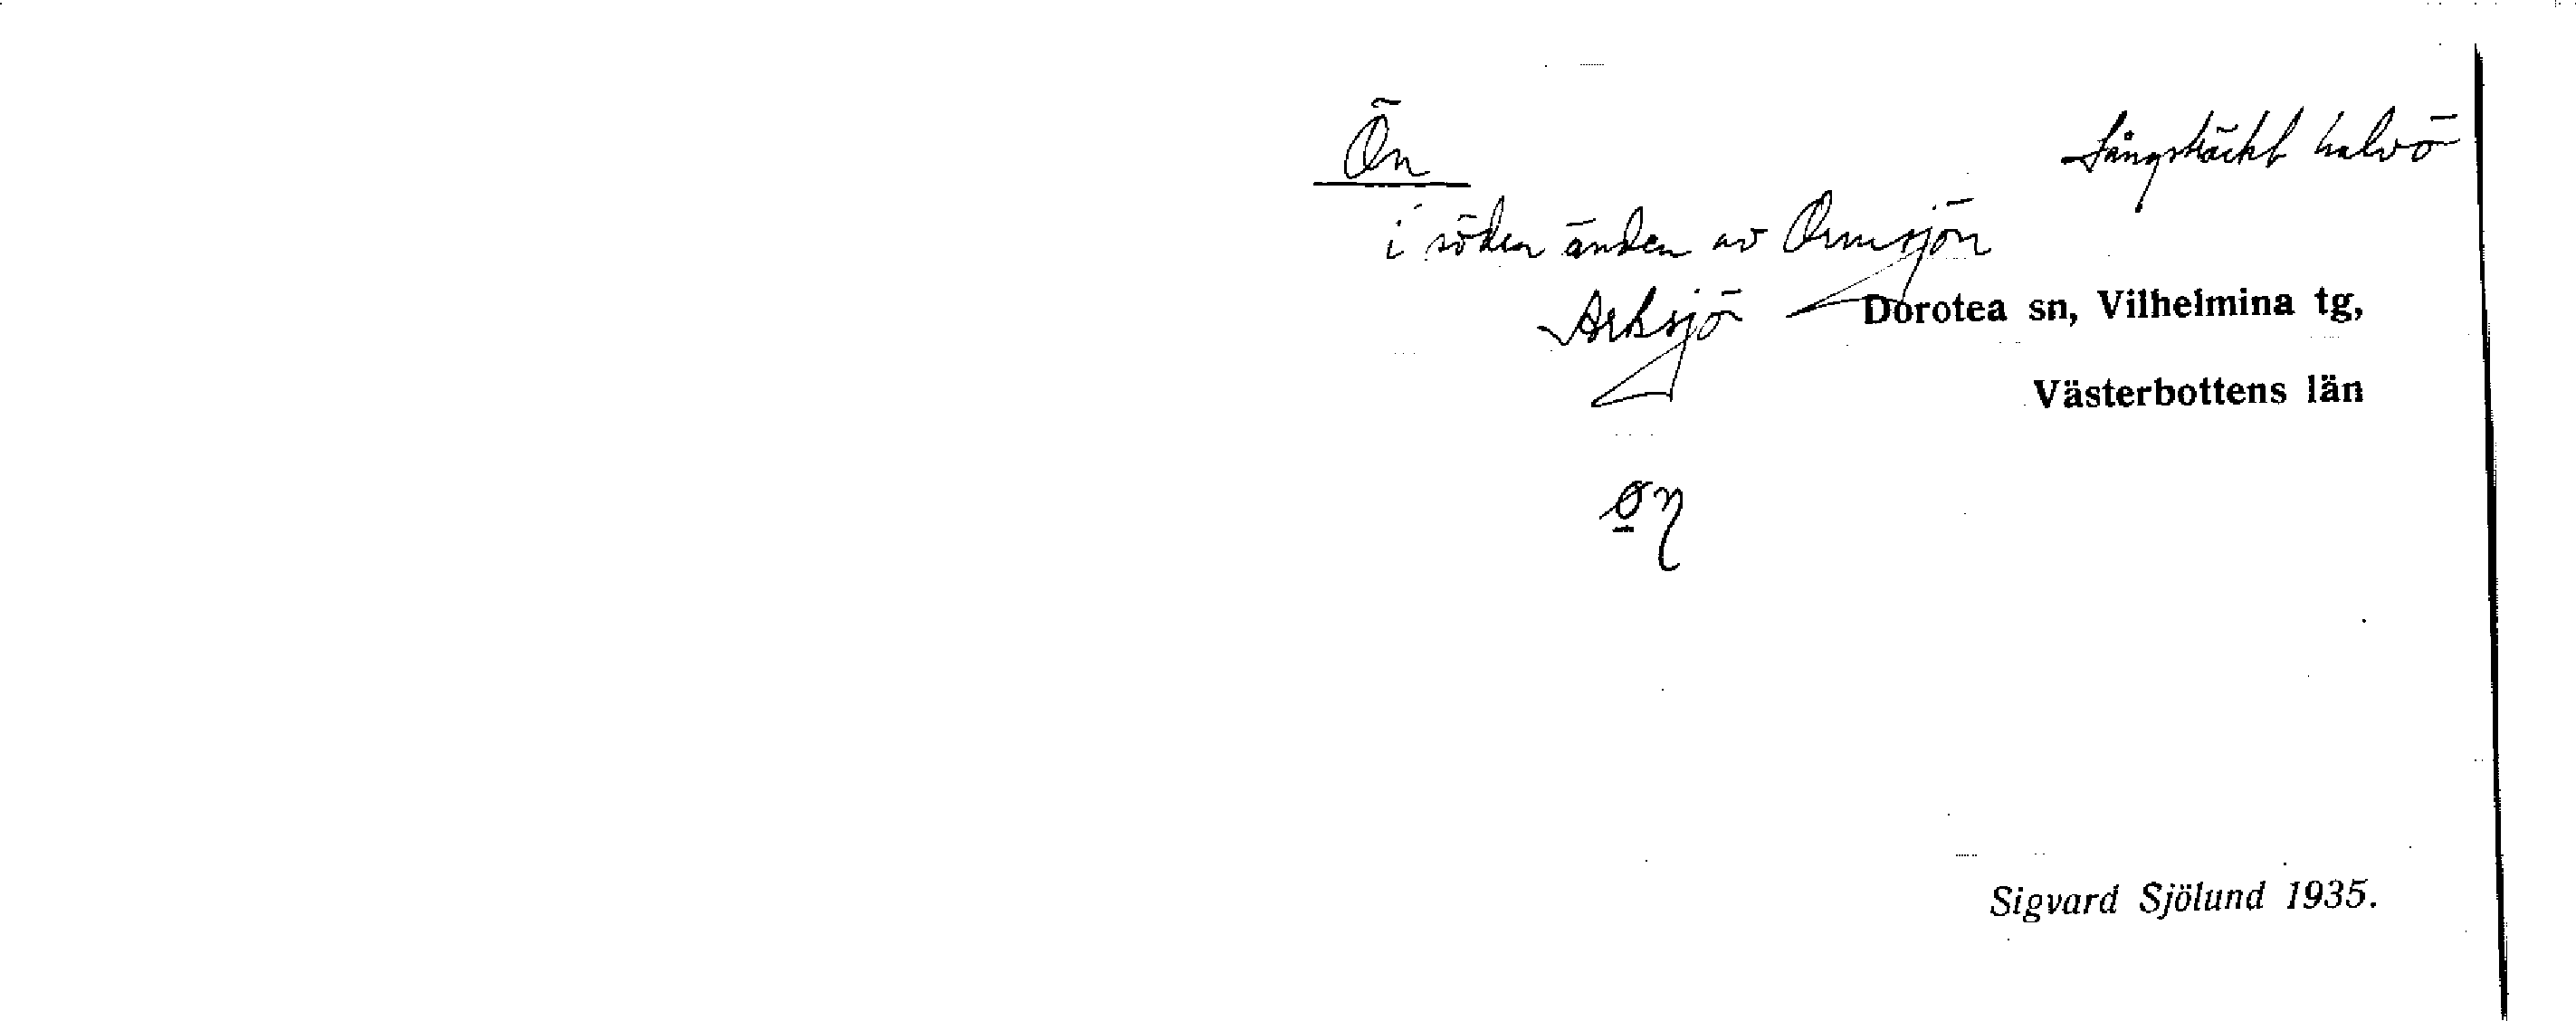 Ön
Långsträckt halvö
i södra änden av Ormsjön
Arksjö
Dorotea sn, Vilhelmina tg,
Västerbottens län
Sigvard Sjölund 1935.